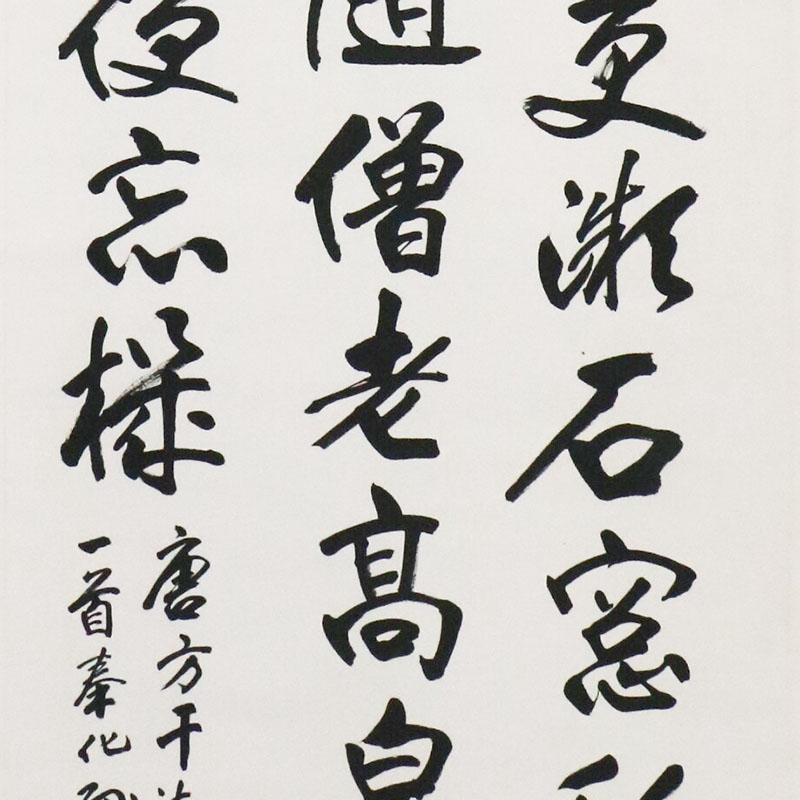 更石窓
随僧老高
便忘機
唐方干
一首奉化